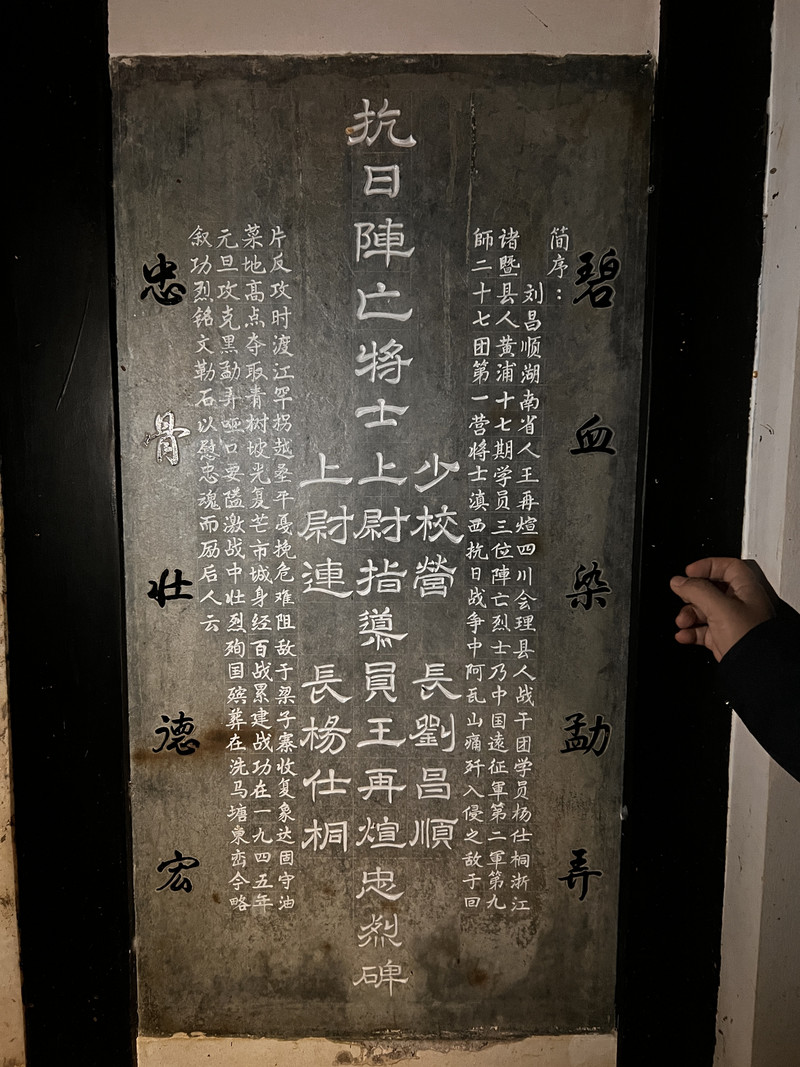 碧血染勐弄
简序：
刘昌顺湖南省人王再煊四川会理县人战干团学员杨仕桐浙江
诸暨县人黄浦十七期学员三位陣亡烈士乃中国遠征軍第二軍第九
師二十七团第一营将士滇西抗日战争中阿瓦山痛歼入侵之敌于回
少校營長劉昌順
抗日陣亡將士上尉指導員王再煊忠烈碑
上尉連長楊仕桐
片反攻时渡江罕拐越平戛挽危难阻敌于梁子寨收复象达固守油
菜地高点夺取青树坡光复芒市城身经百战累建战功在一九四五年
元旦攻克黑勐弄哑口要隘激战中壮烈殉国殡葬在洗马塘東峦今略
叙功烈铭文勒石以慰忠魂而励后人云
忠骨壮德宏